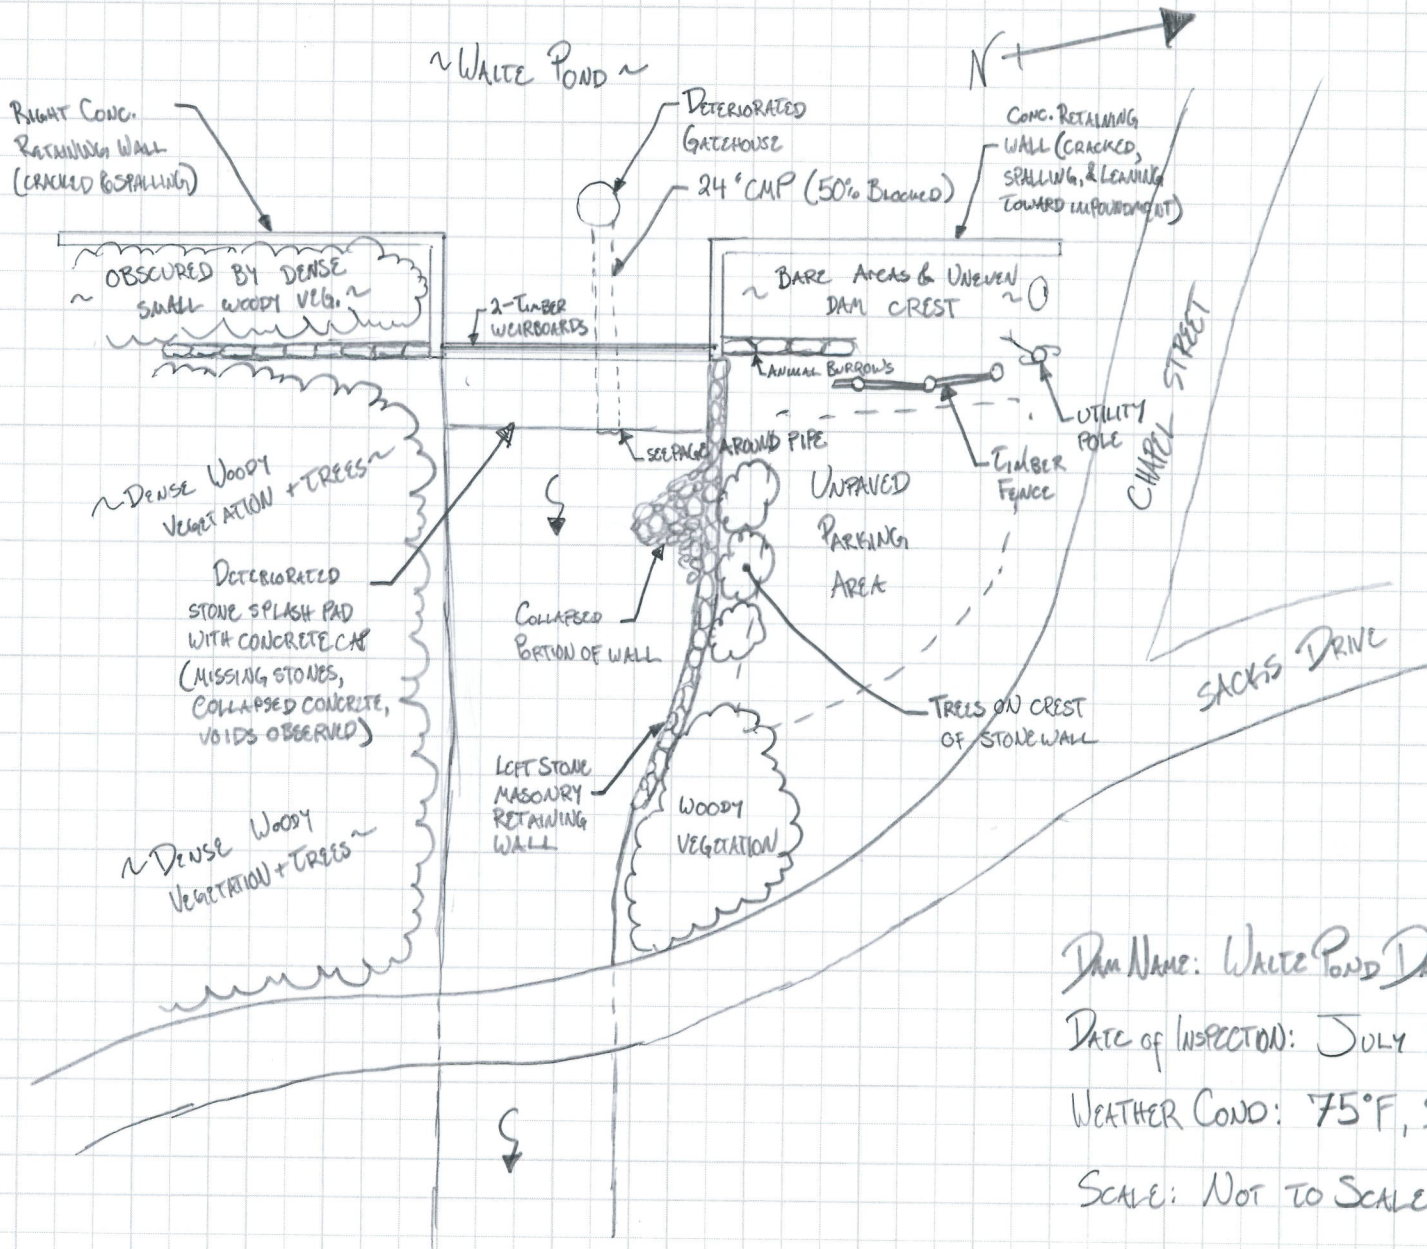 N
~ WALTE POND ~
RIGHT CONC.
RETAINING WALL
(CRACKED & SPALLING)
DETERIORATED
GATEHOUSE
24" CMP (50% BLOCKED)
CONC. RETAINING
WALL (CRACKED,
SPALLING, & LEANING
TOWARD IMPOUNDMENT)
OBSCURED BY DENSE
~ SMALL WOODY VEG. ~
2-TIMBER
WEIRBOARDS
BARE AREAS & UNEVEN
~ DAM CREST ~
ANIMAL BURROWS
UTILITY
POLE
TIMBER
FENCE
CHAPEL STREET
SEEPAGE AROUND PIPE
~DENSE WOODY
VEGETATION + TREES~
UNPAVED
PARKING
AREA
DETERIORATED
STONE SPLASH PAD
WITH CONCRETE CAP
(MISSING STONES,
COLLAPSED CONCRETE,
VOIDS OBSERVED)
COLLAPSED
PORTION OF WALL
SACKS DRIVE
TREES ON CREST
OF STONE WALL
LEFT STONE
MASONRY
RETAINING
WALL
WOODY
VEGETATION
~DENSE WOODY
VEGETATION + TREES~
DAM NAME: WALTE POND DA
DATE OF INSPECTION: JULY
WEATHER COND: 75°F,
SCALE: NOT TO SCALE